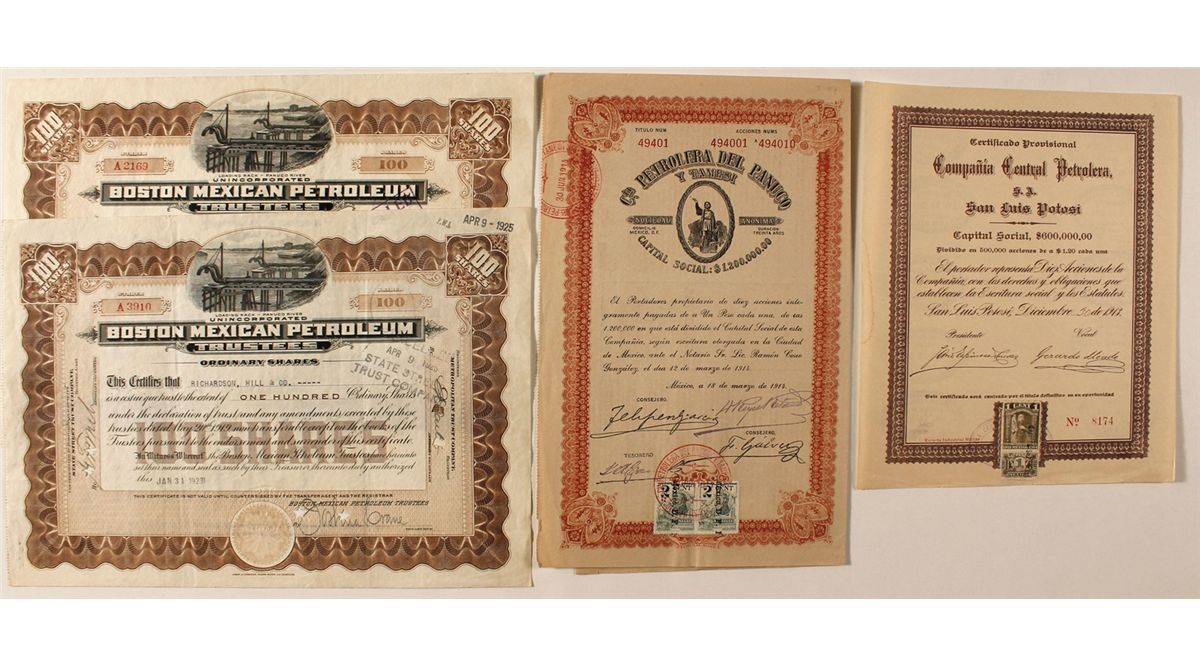 100
SHARES
SHARES
A2169
100
LOADING RACK - PANUCO RIVER
UNINCORPORATED
BOSTON MEXICAN PETROLEUM
TRUSTEES
APR 9 - 1925
100
SHARES
SHARES
A3910
100
LOADING RACK - PANUCO RIVER
UNINCORPORATED
BOSTON MEXICAN PETROLEUM
TRUSTEES
ORDINARY SHARES
This Certifies that RICHARDSON, HILL & CO. -----
is a cestui que trust to the extent of ONE HUNDRED Ordinary Shares
under the declaration of trust and any amendments executed by those
trustees dated May 29th 1919 non transferable except on the books of the
Trustees pursuant to the endorsement and surrender of this certificate.
In Witness Whereof, the Boston Mexican Petroleum Trustees have hereunto
set their name and seal as such by their Treasurer thereunto duly authorized
this JAN 31 1923
THIS CERTIFICATE IS NOT VALID UNTIL COUNTERSIGNED BY THE TRANSFER AGENT AND THE REGISTRAR
BOSTON MEXICAN PETROLEUM TRUSTEES
APR 9
STATE STREET
TRUST COMPANY
STATE STREET TRUST COMPANY,
METROPOLITAN TRUST COMPANY,
TITULO NUM
ACCIONES NUMS
49401
494001 A 494010
Cª PETROLERA DEL PANUCO
Y TAMESI
SOCIEDAD ANONIMA
DOMICILIO
MEXICO, D.F.
DURACION
TREINTA AÑOS
CAPITAL SOCIAL: $1.200,000.00
El Portador es propietario de diez acciones inte-
gramente pagadas de a Un Peso cada una, de las
1.200,000 en que está dividido el Capital Social de esta
Compañía, según escritura otorgada en la Ciudad
de Mexico ante el Notario Sr. Lic Ramón Coso
González, el día 12 de marzo de 1914.
México, a 18 de marzo de 1914.
CONSEJERO,
CONSEJERO,
TESORERO
2
2
Certificado Provisional
Compañía Central Petrolera,
S. A.
San Luis Potosi
Capital Social, $600,000,00
Dividido en 500,000 acciones de a $1.20 cada una
El portador representa Diez Acciones de la
Compañía, con los derechos y obligaciones que
establecen la Escritura social y los Estatutos.
San Luis Potosí, Diciembre 30 de 1913.
Presidente
Vocal
Este certificado será canjeado por el título definitivo en su oportunidad
Nº 8174